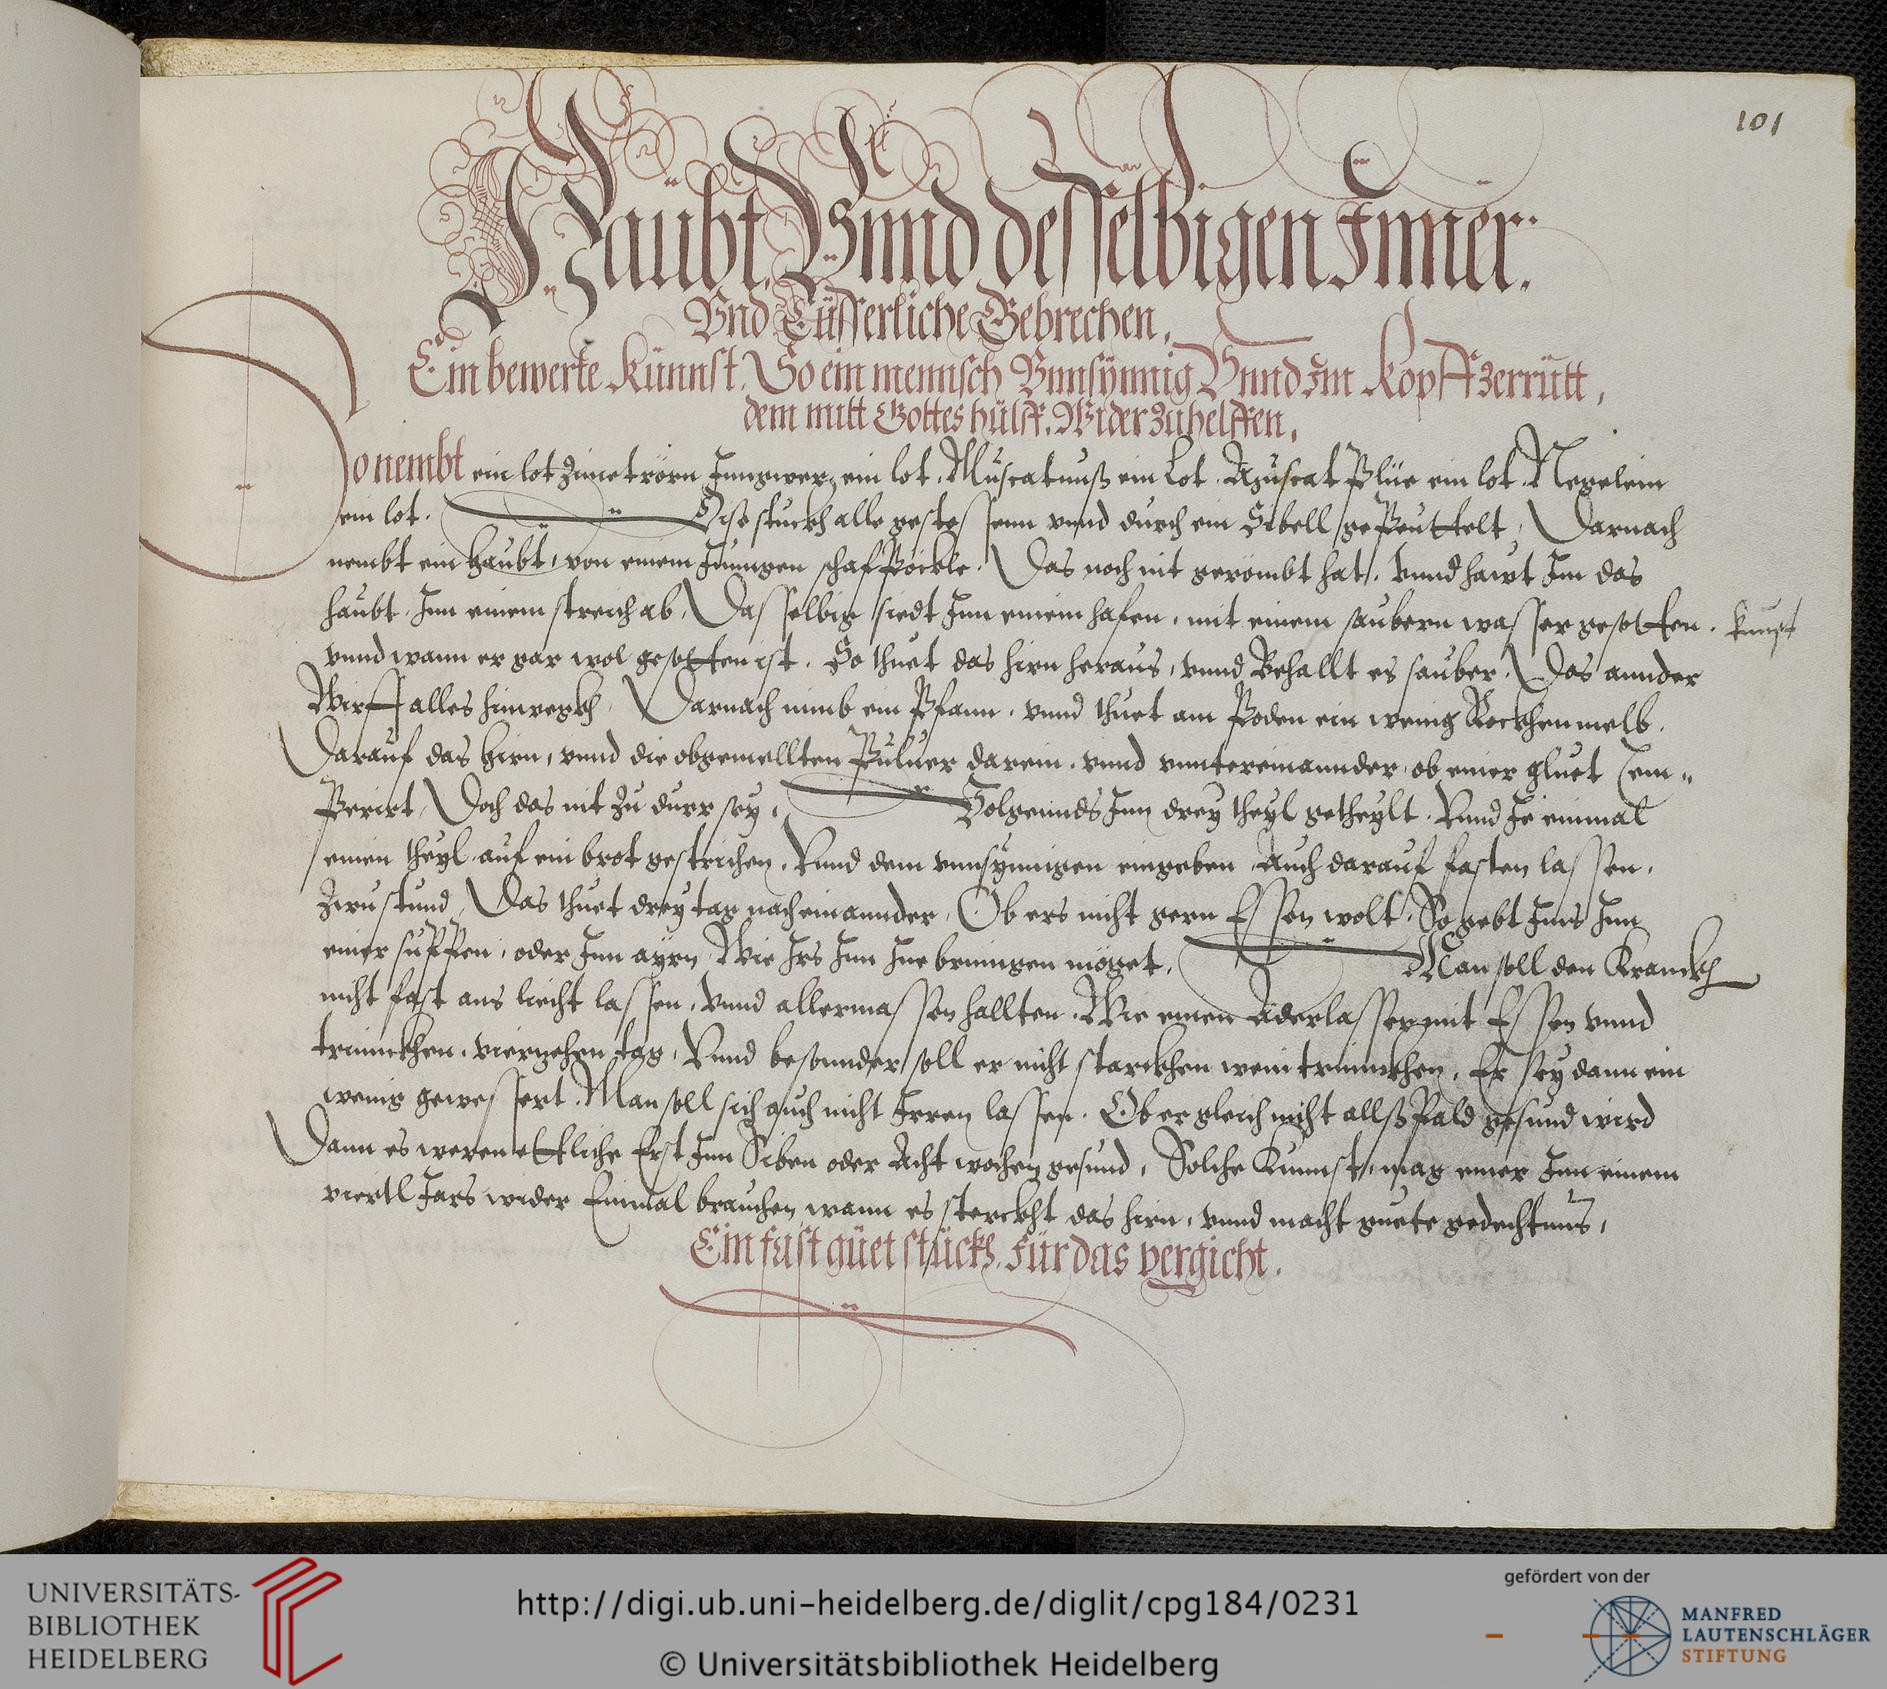 101
Haubt. Vnnd desselbigen Inner.
Vnd Eüsserliche Gebrechen,
Ein bewerte künnst. So ein mennsch Vnnsynnig Vnnd Im kopff zerrütt,
dem mitt Gottes hülff. Wider zuhelffen,
So nembt ein lot Zimetrörn Inngwer, ein lot. Muscatnuß ein Lot. Muscat Plüe ein lot. Negelein
ein lot. Dise stuckh alle gestossenn vnnd durch ein Sibell gepeuttelt, Darnach
nembt ein haubt, von einem Jungen schaf Pöckle. Das noch nit gerömbt hat. vnnd hawt Im das
haubt. Inn einem streich ab, Dasselbig siedt Inn einem hafen, mit einem saubern wasser gesotten. kunst
vnnd wann er gar wol gesotten ist. So thuet das hirn heraus, vnnd Behallt es sauber. Das annder
Wirff alles hinwegkh. Darnach nimb ein Pfann. vnnd thuet am Poden ein wenig Rockhenmelb.
Darauf das hirn, vnnd die obgemellten Puluer darein. vnnd vnntereinannder, ob einer gluet Tem"
Perirt, Doch das nit Zu durr sey, Volgennds Inn drey theyl getheylt. Vnnd Je einmal
einen theyl auf ein brot gestrichen. Vnnd dem vnnsynnigen eingeben. Auch darauf fasten lassen.
Zwu stund, Das thuet drey tag nacheinannder, Ob ers nicht gern Essen wolt, So gebt Ims Inn
einer suppen, oder Inn ayrn. Wie Irs Inn Ine bringen möget. Man soll den Kranckh
nicht fast ans liecht lassen, vnnd allermassen hallten. Wie einen Aderlasser mit Essen vnnd
trinnckhen. vierzehen tag, Vnnd besonnder soll er nicht starckhen wein trinnckhen, Er sey dann ein
wenig gewessert. Man soll sich auch nicht Irren lassen. Ob er gleich nicht allß Pald gesund wird
Dann es weren ettliche Erst Inn Siben oder Acht wochen gesund, Solche Kunnst, mag einer Inn einem
viertl Jars wider Einmal brauchen, wann es sterckht das hirn, vnnd macht guete gedechtnus,
Ein fast güet stückh. für das vergicht.
UNIVERSITÄTS-
BIBLIOTHEK
HEIDELBERG
http://digi.ub.uni-heidelberg.de/diglit/cpg184/0231
© Universitätsbibliothek Heidelberg
gefördert von der
MANFRED
LAUTENSCHLÄGER
STIFTUNG